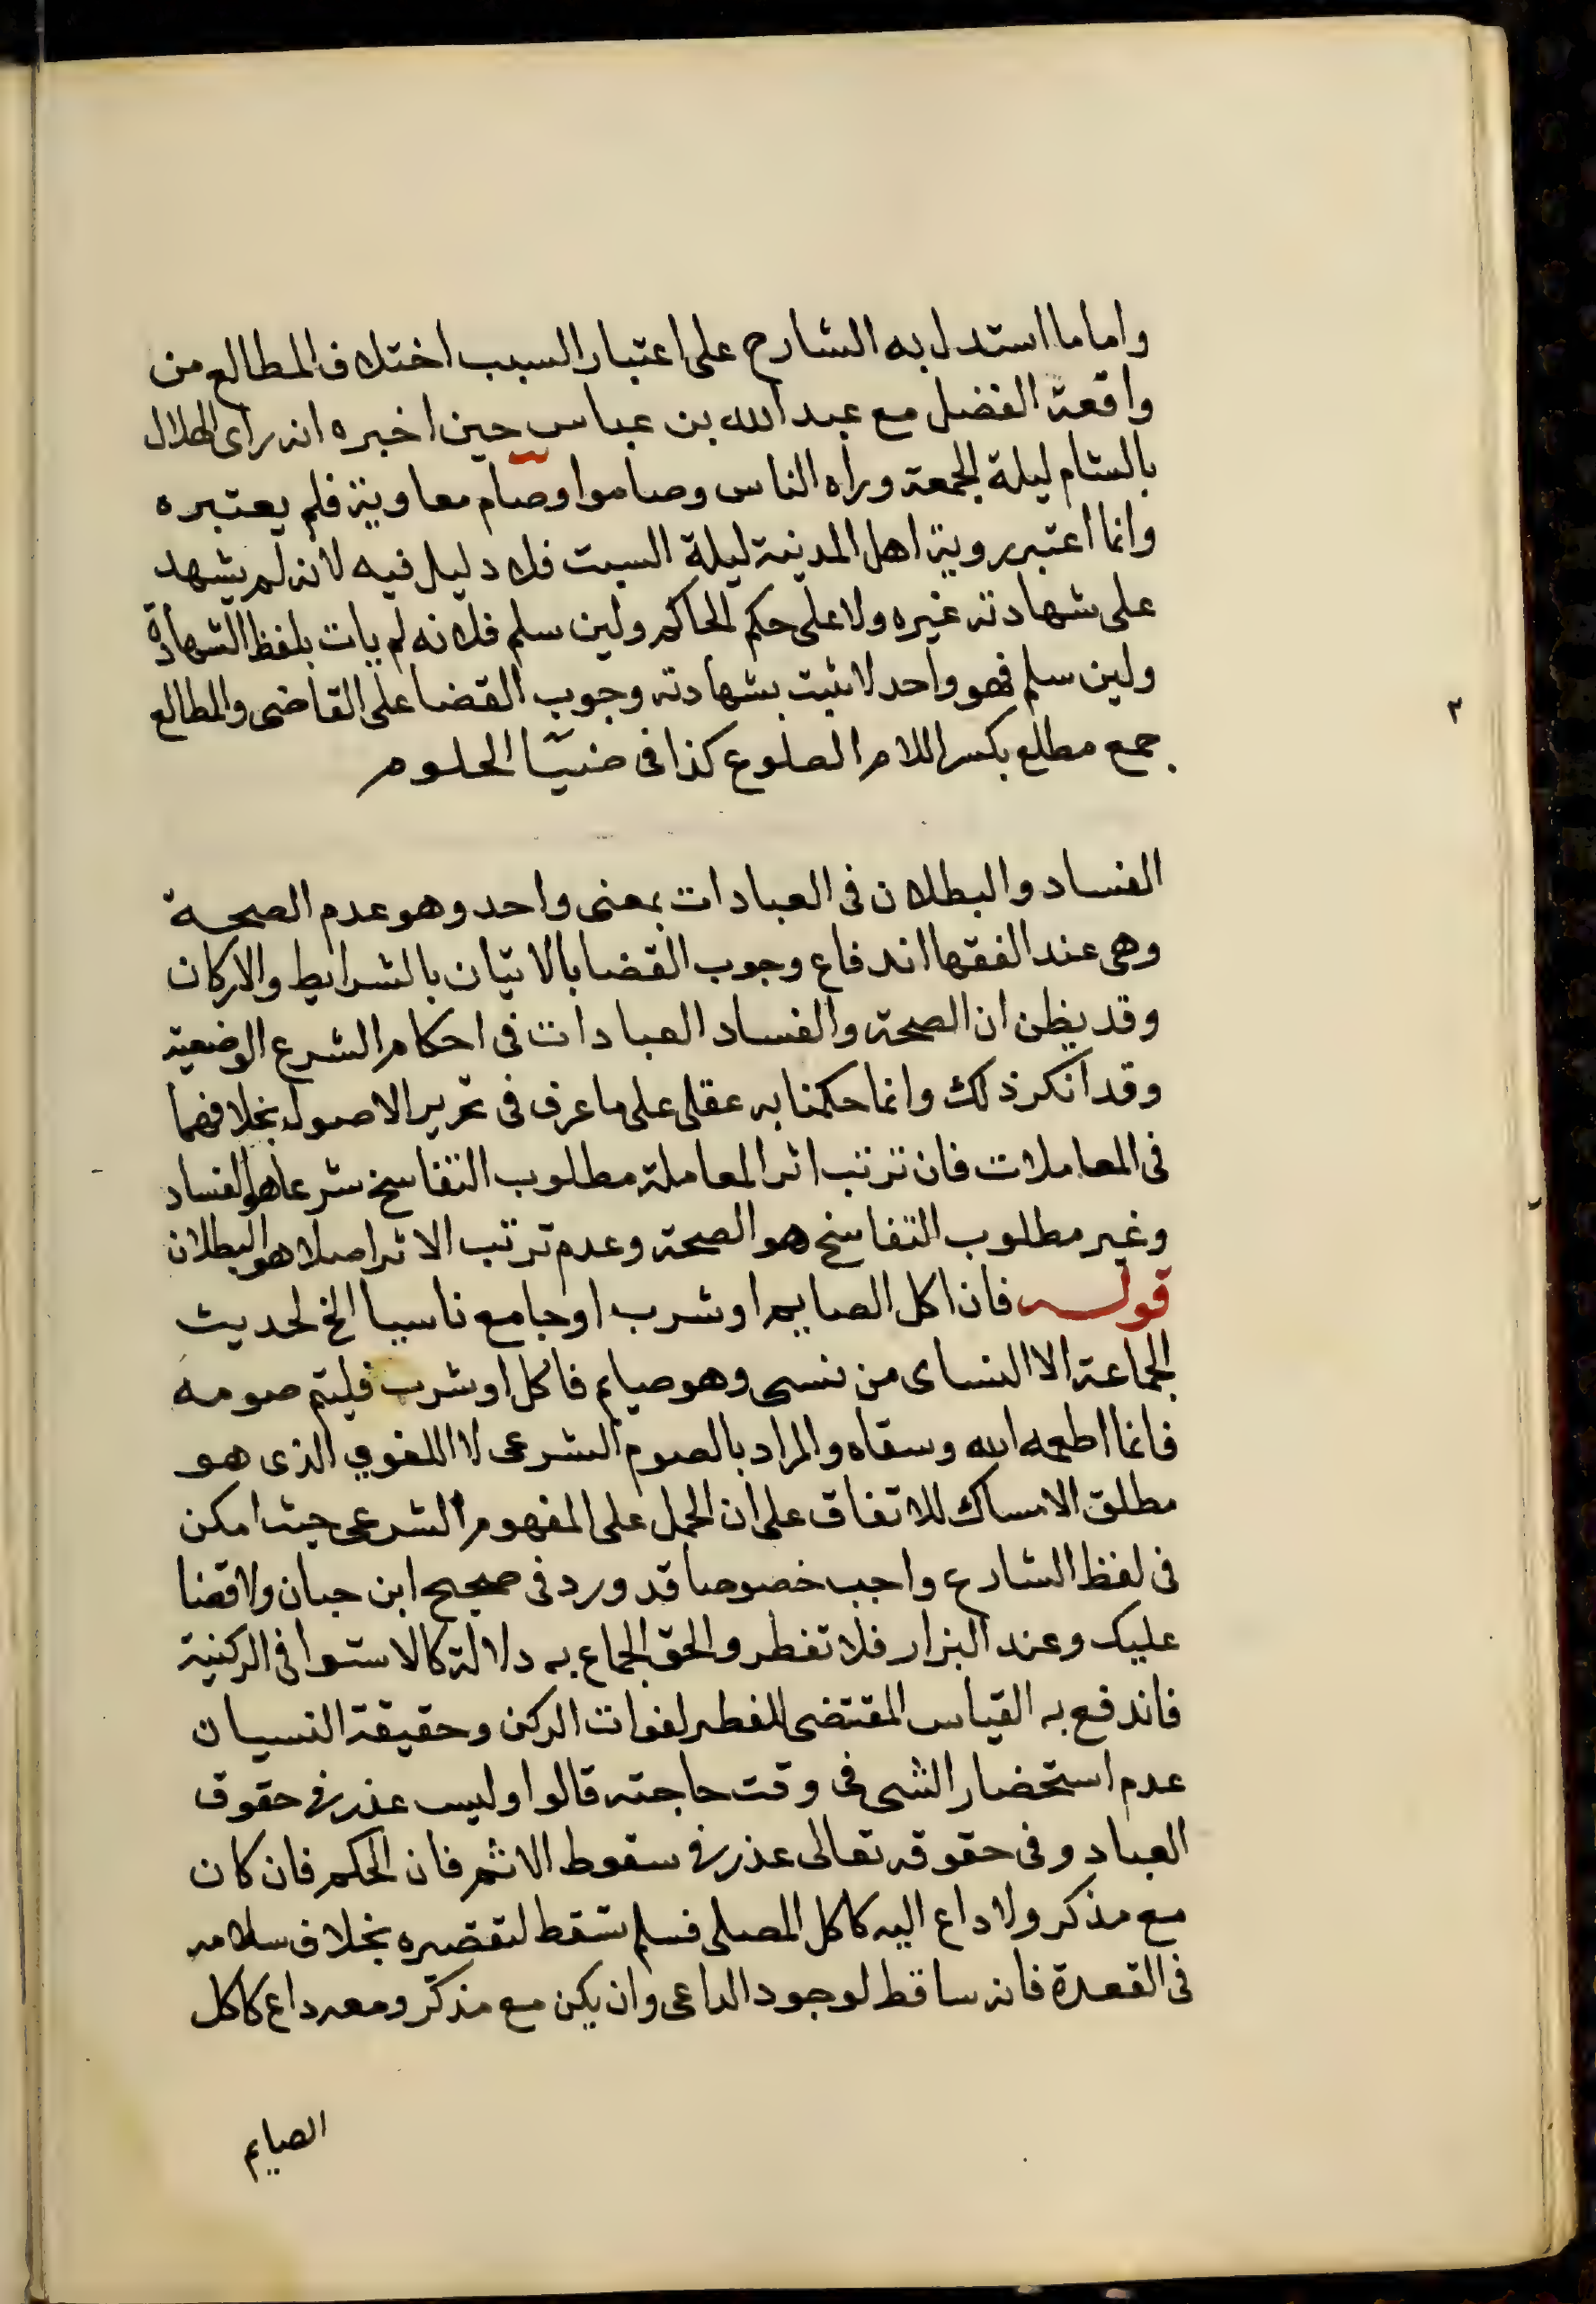 واما ما استدل به الشارح على اعتبار السبب اختلاف المطالع من
واقعة الفضل مع عبد الله بن عباس حين اخبره انه راى الهلال
بالشام ليلة الجمعة وراه الناس وصاموا وصام معاوية فلم يعتبره
وانما اعتبر روية اهل المدينة ليلة السبت فلا دليل فيه لانه لم يشهد
على شهادته غيره ولا على حكم الحاكم ولين سلم فلانه لم يات بلفظ الشهادة
ولين سلم فهو واحد لا يثبت بشهادته وجوب القضا على القاضى والمطالع
جمع مطلع بكسر اللام الطلوع كذا فى ضيا الحلوم
الفساد والبطلان فى العبادات بمعنى واحد وهو عدم الصحة
وهى عند الفقها اندفاع وجوب القضا بالاتيان بالشرايط والاركان
وقد يظن ان الصحة والفساد العبادات فى احكام الشرع الوضعية
وقد انكر ذلك وانما حكمنا به عقلى على ما عرف فى تحرير الاصول بخلافهما
فى المعاملات فان ترتب اثر المعاملة مطلوب التفاسخ شرعا هو الفساد
وغير مطلوب التفاسخ هو الصحة وعدم ترتب الاثر اصلا هو البطلان
قوله فان اكل الصايم او شرب او جامع ناسيا الخ لحديث
الجماعة الا النساى من نسى وهو صايم فاكل او شرب فليتم صومه
فانما اطعمه الله وسقاه والمراد بالصوم الشرعى لا اللغوي الذى هو
مطلق الامساك للاتفاق على ان الحمل على المفهوم الشرعى حيث امكن
فى لفظ الشارع واجب خصوصا قد ورد فى صحيح ابن حبان ولا قضا
عليك وعند البزار فلا تفطر والحق الجماع به دلالة كالاستوا فى الركنية
فاندفع به القياس المقتضى للفطر لفوات الركن وحقيقة النسيان
عدم استحضار الشى فى وقت حاجته قالوا وليس عذر فى حقوق
العباد وفى حقوقه تعالى عذر فى سقوط الاثم فان الحكم فان كان
مع مذكر ولا داع اليه كاكل المصلى فسلم تسقط لتقصيره بخلاف سلامه
فى القعدة فانه ساقط لوجود الداعى وان يكن مع مذكر ومعه داع كاكل
الصايم